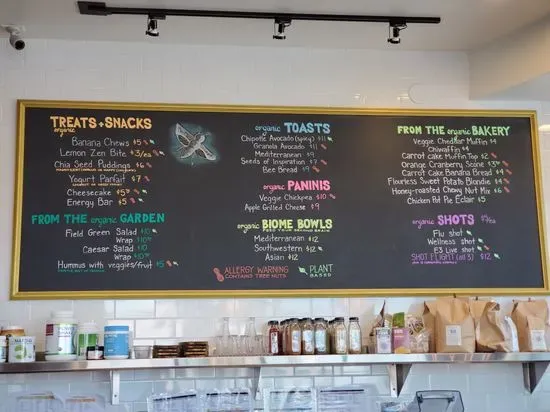 TREATS + SNACKS
organic
Banana Chews $5
Lemon Zen Bite $3/ea
Chia Seed Puddings $6
Yogurt Parfait $7
Cheesecake $5
Energy Bar $5
FROM THE organic GARDEN
Field Green Salad $10
Wrap $10
Caesar Salad $10
Wrap $10
Hummus with veggies/fruit $5
organic TOASTS
Chipotle Avocado (spicy) $11
Granola Avocado $11
Mediterranean $9
Seeds of Inspiration $7
Bee Bread $9
organic PANINIS
Veggie Chickpea $10
Apple Grilled Cheese $9
organic BIOME BOWLS
FEED YOUR SECOND BRAIN
Mediterranean $12
Southwestern $12
Asian $12
ALLERGY WARNING
CONTAINS TREE NUTS
PLANT
BASED
FROM THE organic BAKERY
Veggie Cheddar Muffin $4
Chiwaffin $4
Carrot Cake Muffin Top $2
Orange Cranberry Scone
Carrot Cake Banana Bread $4
Flourless Sweet Potato Blondie $4
Honey-roasted Chewy Nut Mix $6
Chicken Pot Pie Eclair $5
organic SHOTS
Flu shot
Wellness shot
E3 Live shot
SHOT FLIGHT (all 3) $12